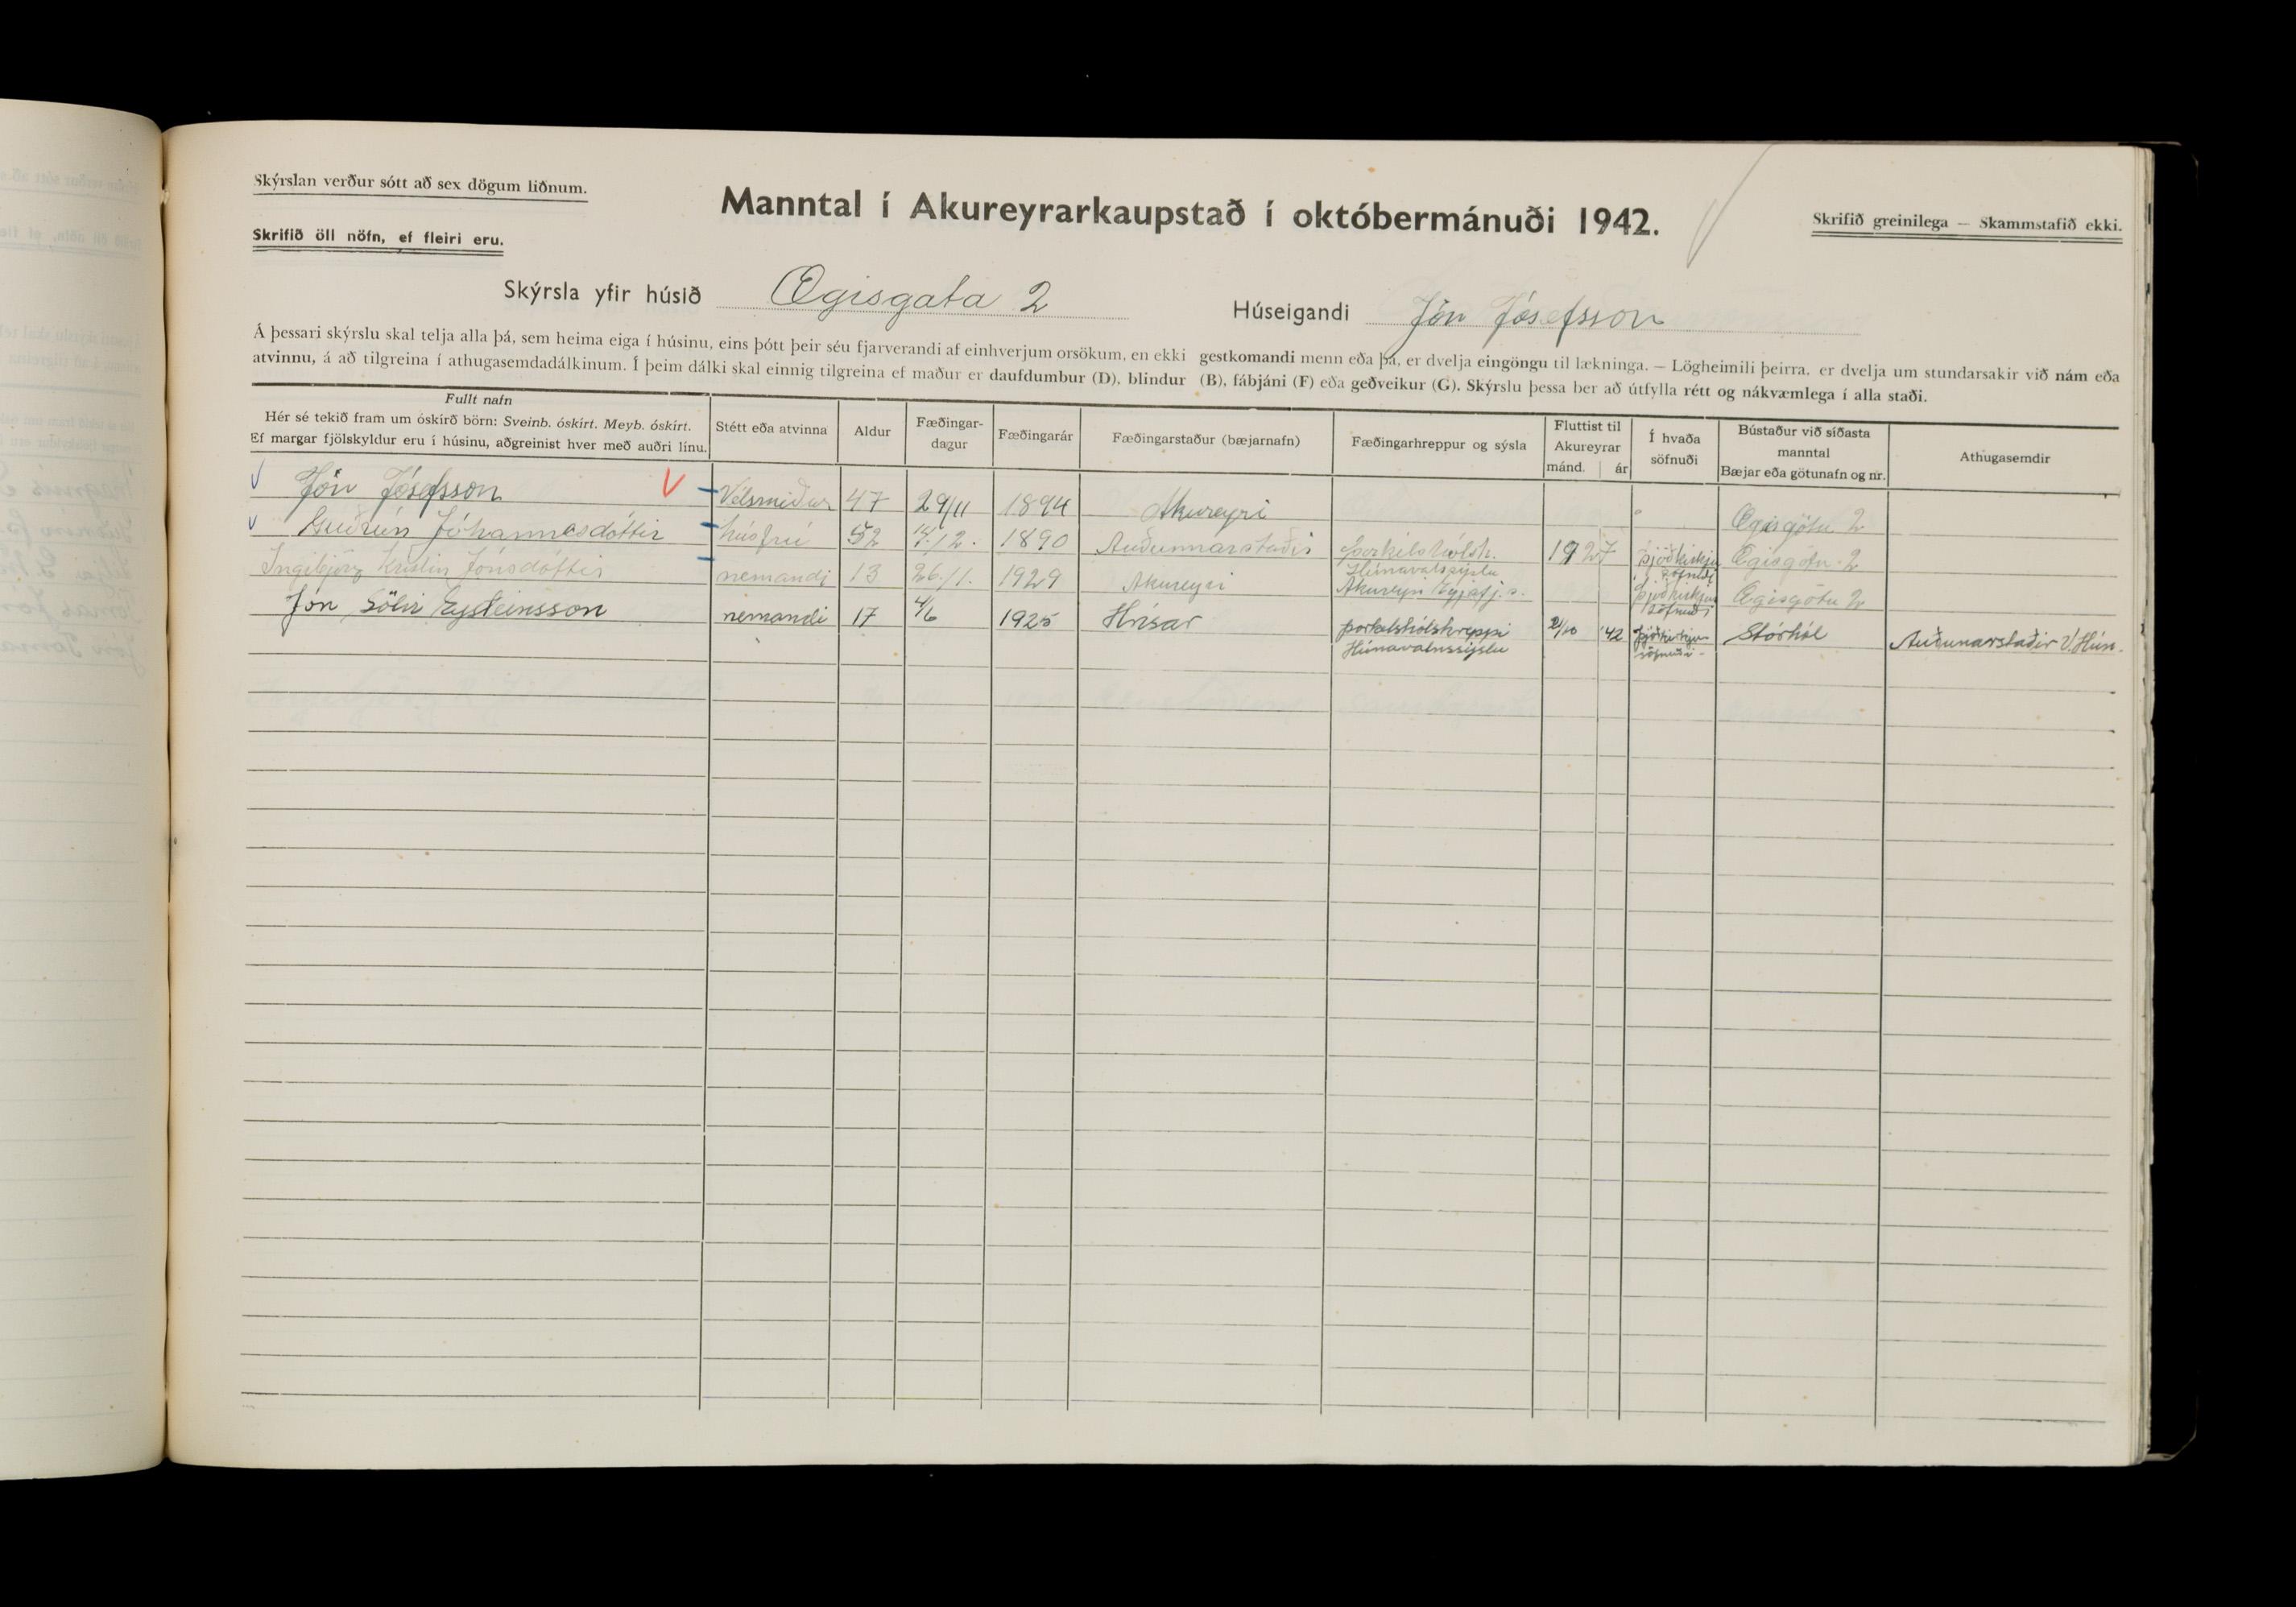 Skýrslan verður sótt að sex dögum liðnum.
Skrifið öll nöfn, ef fleiri eru.
Manntal í Akureyrarkaupstað í októbermánuði 1942.
Skrifið greinilega — Skammstafið ekki.
Skýrsla yfir húsið Ægisgata 2 Húseigandi Jón Jósefsson
Á þessari skýrslu skal telja alla þá, sem heima eiga í húsinu, eins þótt þeir séu fjarverandi af einhverjum orsökum, en ekki gestkomandi menn eða þá, er dvelja eingöngu til lækninga. — Lögheimili þeirra, er dvelja um stundarsakir við nám eða
atvinnu, á að tilgreina í athugasemdadálkinum. Í þeim dálki skal einnig tilgreina ef maður er daufdumbur (D), blindur (B), fábjáni (F) eða geðveikur (G). Skýrslu þessa ber að útfylla rétt og nákvæmlega í alla staði.
Fullt nafn
Hér sé tekið fram um óskírð börn: Sveinb. óskírt. Meyb. óskírt.
Ef margar fjölskyldur eru í húsinu, aðgreinist hver með auðri línu.
Stétt eða atvinna
Aldur
Fæðingar-
dagur
Fæðingarár
Fæðingarstaður (bæjarnafn)
Fæðingarhreppur og sýsla
Fluttist til
Akureyrar
mánd. ár
Í hvaða
söfnuði
Bústaður við síðasta
manntal
Bæjar eða götunafn og nr.
Athugasemdir
Jón Jósefsson Vélsmiður 47 29/11 1894 Akureyri Ægisgötu 2
Guðrún Jóhannesdóttir húsfrú 52 14/12. 1890 Auðunnarstaðir Þorkelshólsh. 1927 Þjóðkirkju Ægisgötu 2
Húnavatssýslu söfnuði
Ingibjörg Kristín Jónsdóttir nemandi 13 26./1. 1929 Akureyri Akureyri Eyjafj.s. Þjóðkirkju Ægisgötu 2
söfnuði
Jón Sölvi Eysteinsson nemandi 17 4/6 1925 Hrísar Þorkelshólshreppi 2/10 '42 Þjóðkirkju Stórhól Auðunarstaðir V. Hún.
Húnavatnssýslu söfnuði